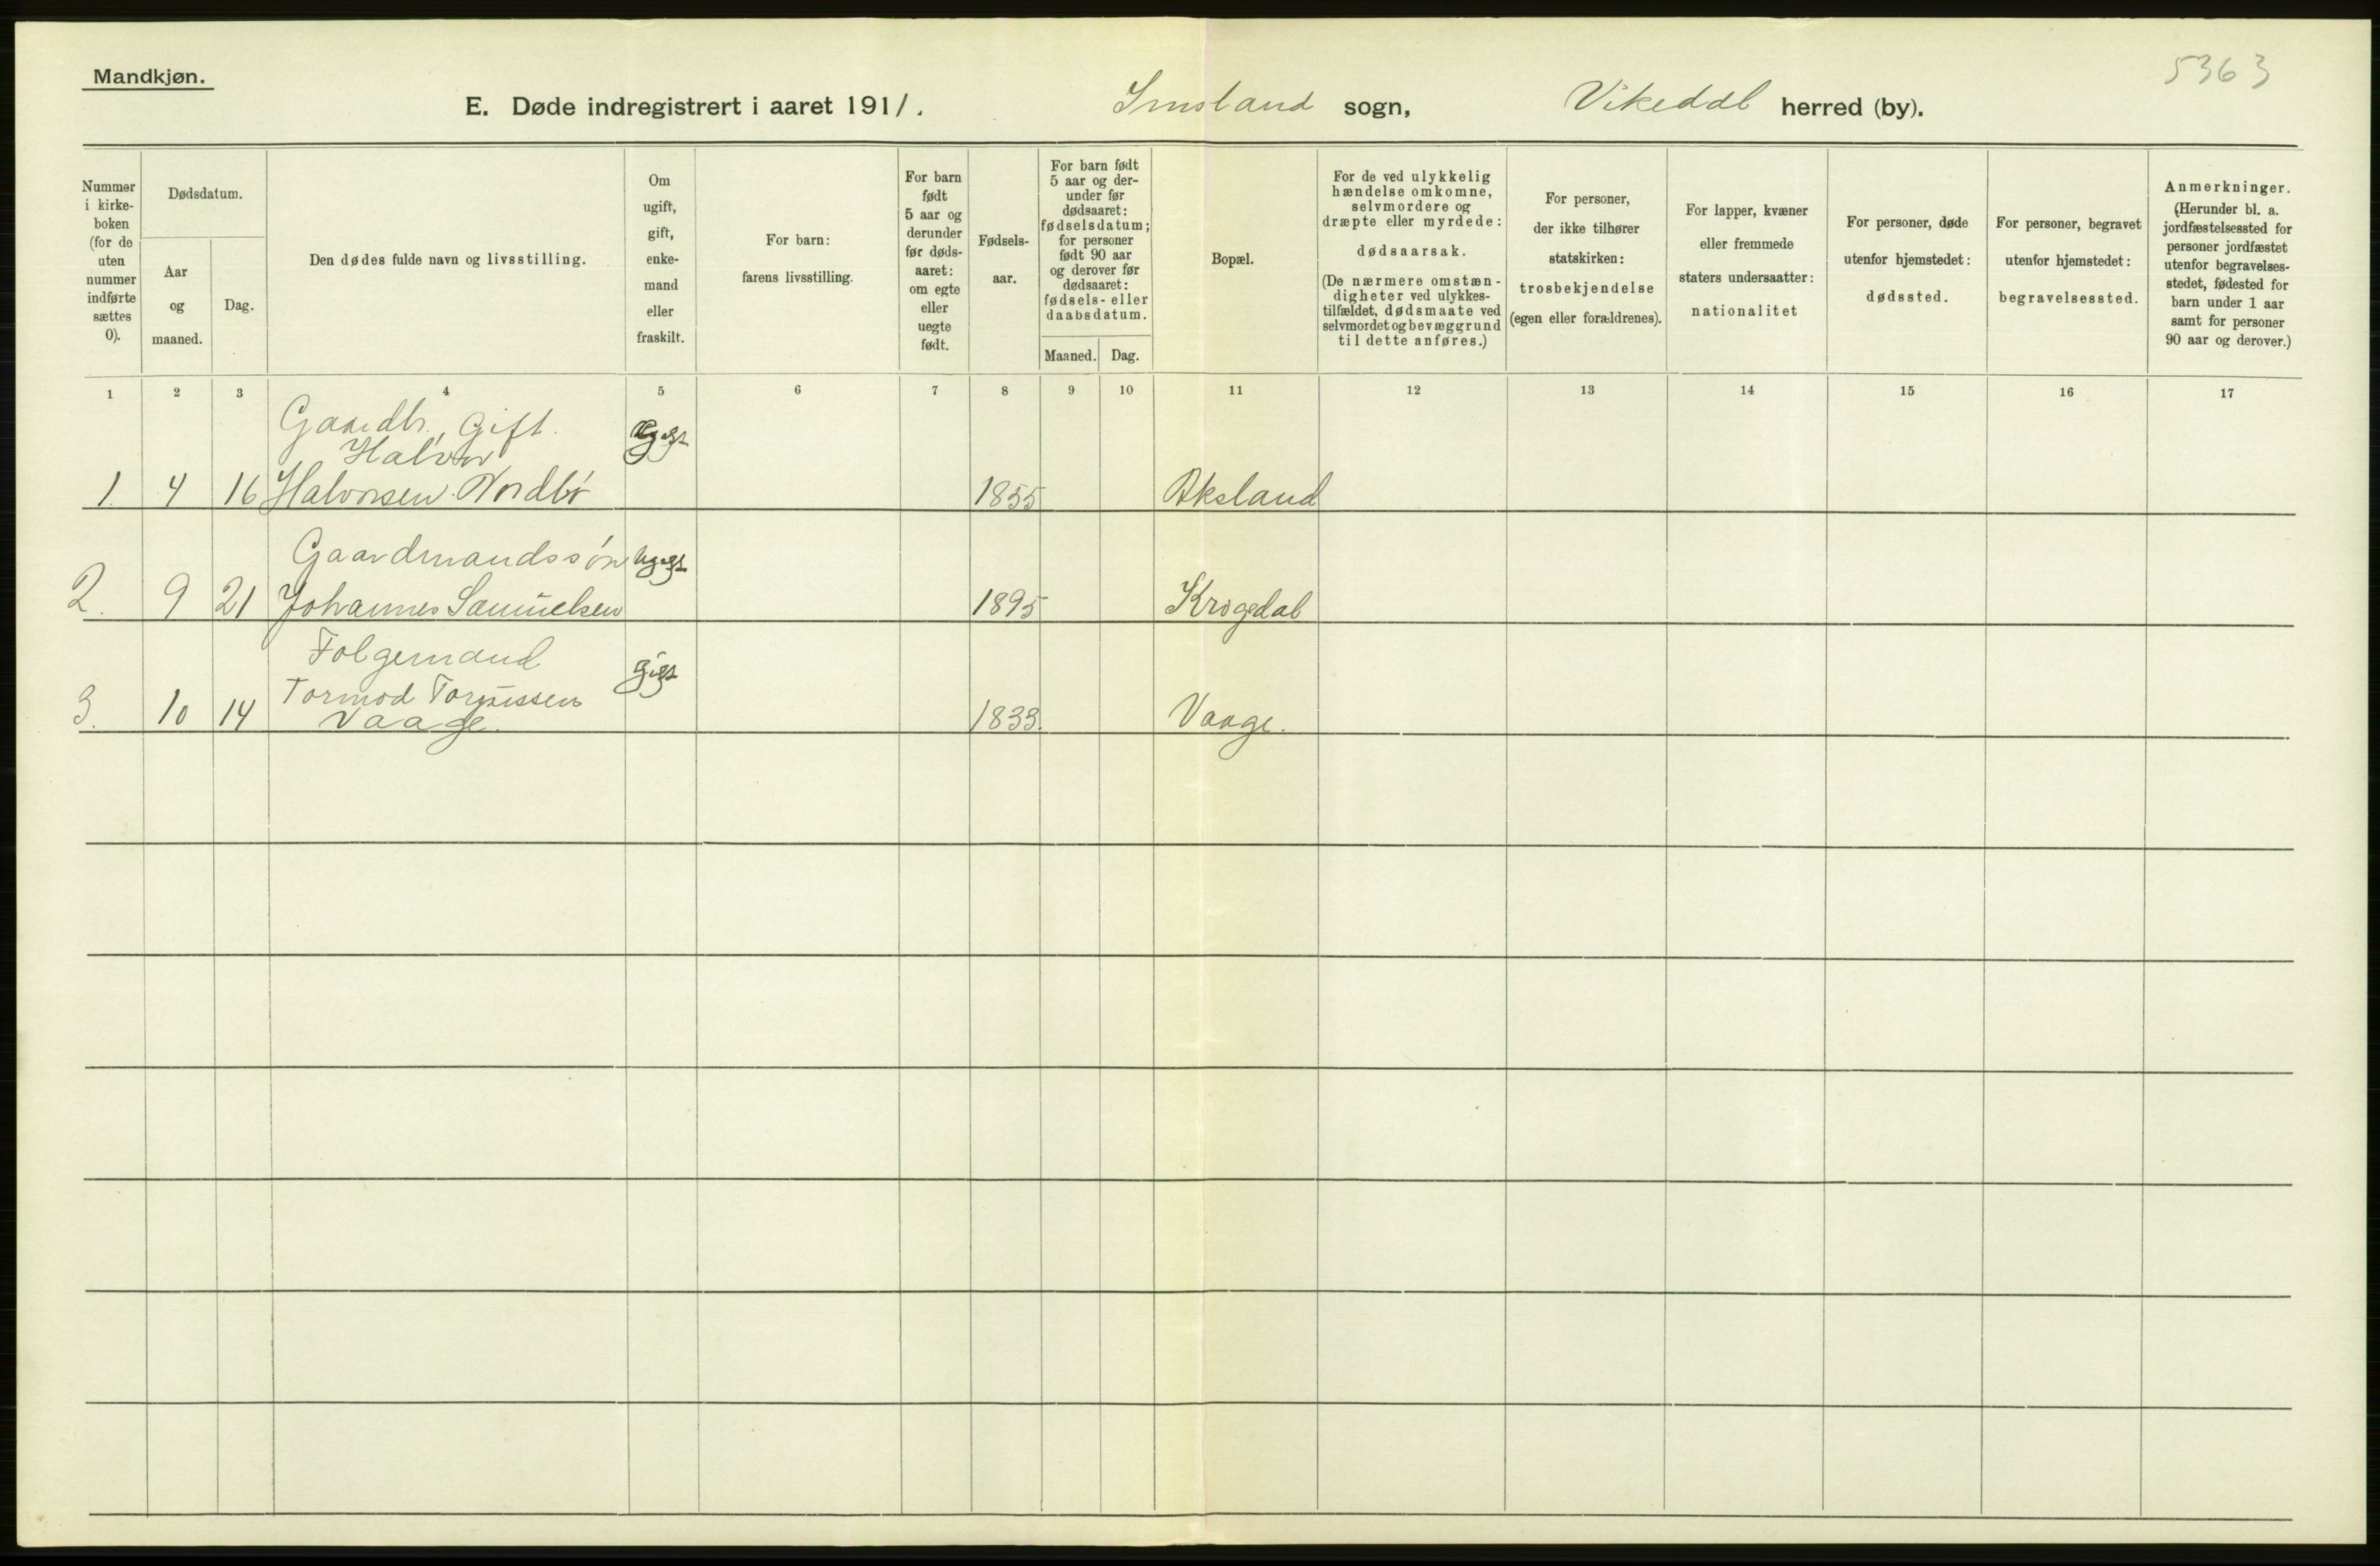 Mandkjøn.
5363
E. Døde indregistrert i aaret 1911. Imsland sogn, Vikedal herred (by).
Nummer
i kirke-
boken
(for de
uten
nummer
indførte
sættes
0).
Dødsdatum.
Aar
og
maaned.
Dag.
Den dødes fulde navn og livsstilling.
Om
ugift,
gift,
enke-
mand
eller
fraskilt.
For barn:
farens livsstilling.
For barn
født
5 aar og
derunder
før døds-
aaret:
om egte
eller
uegte
født.
Fødsels-
aar.
For barn født
5 aar og der-
under før
dødsaaret:
fødselsdatum;
for personer
født 90 aar
og derover før
dødsaaret:
fødsels- eller
daabsdatum.
Maaned. Dag.
Bopæl.
For de ved ulykkelig
hændelse omkomne,
selvmordere og
dræpte eller myrdede:
dødsaarsak.
(De nærmere omstæn-
digheter ved ulykkes-
tilfældet, dødsmaate ved
selvmordet og bevæggrund
til dette anføres.)
For personer,
der ikke tilhører
statskirken:
trosbekjendelse
(egen eller forældrenes).
For lapper, kvæner
eller fremmede
staters undersaatter:
nationalitet
For personer, døde
utenfor hjemstedet:
dødssted.
For personer, begravet
utenfor hjemstedet:
begravelsessted.
Anmerkninger.
(Herunder bl. a.
jordfæstelsessted for
personer jordfæstet
utenfor begravelses-
stedet, fødested for
barn under 1 aar
samt for personer
90 aar og derover.)
1 2 3 4 5 6 7 8 9 10 11 12 13 14 15 16 17
Gaardbr., Gift.
Halvor
1. 4 16 Halvorsen Nordbø 1855 Aksland
Gaardmandssøn ugift
2. 9 21 Johannes Samuelsen 1895 Krogedal
Folgemand gift
Tormod Tormissen
3. 10 14 Vaage. 1833. Vaage.